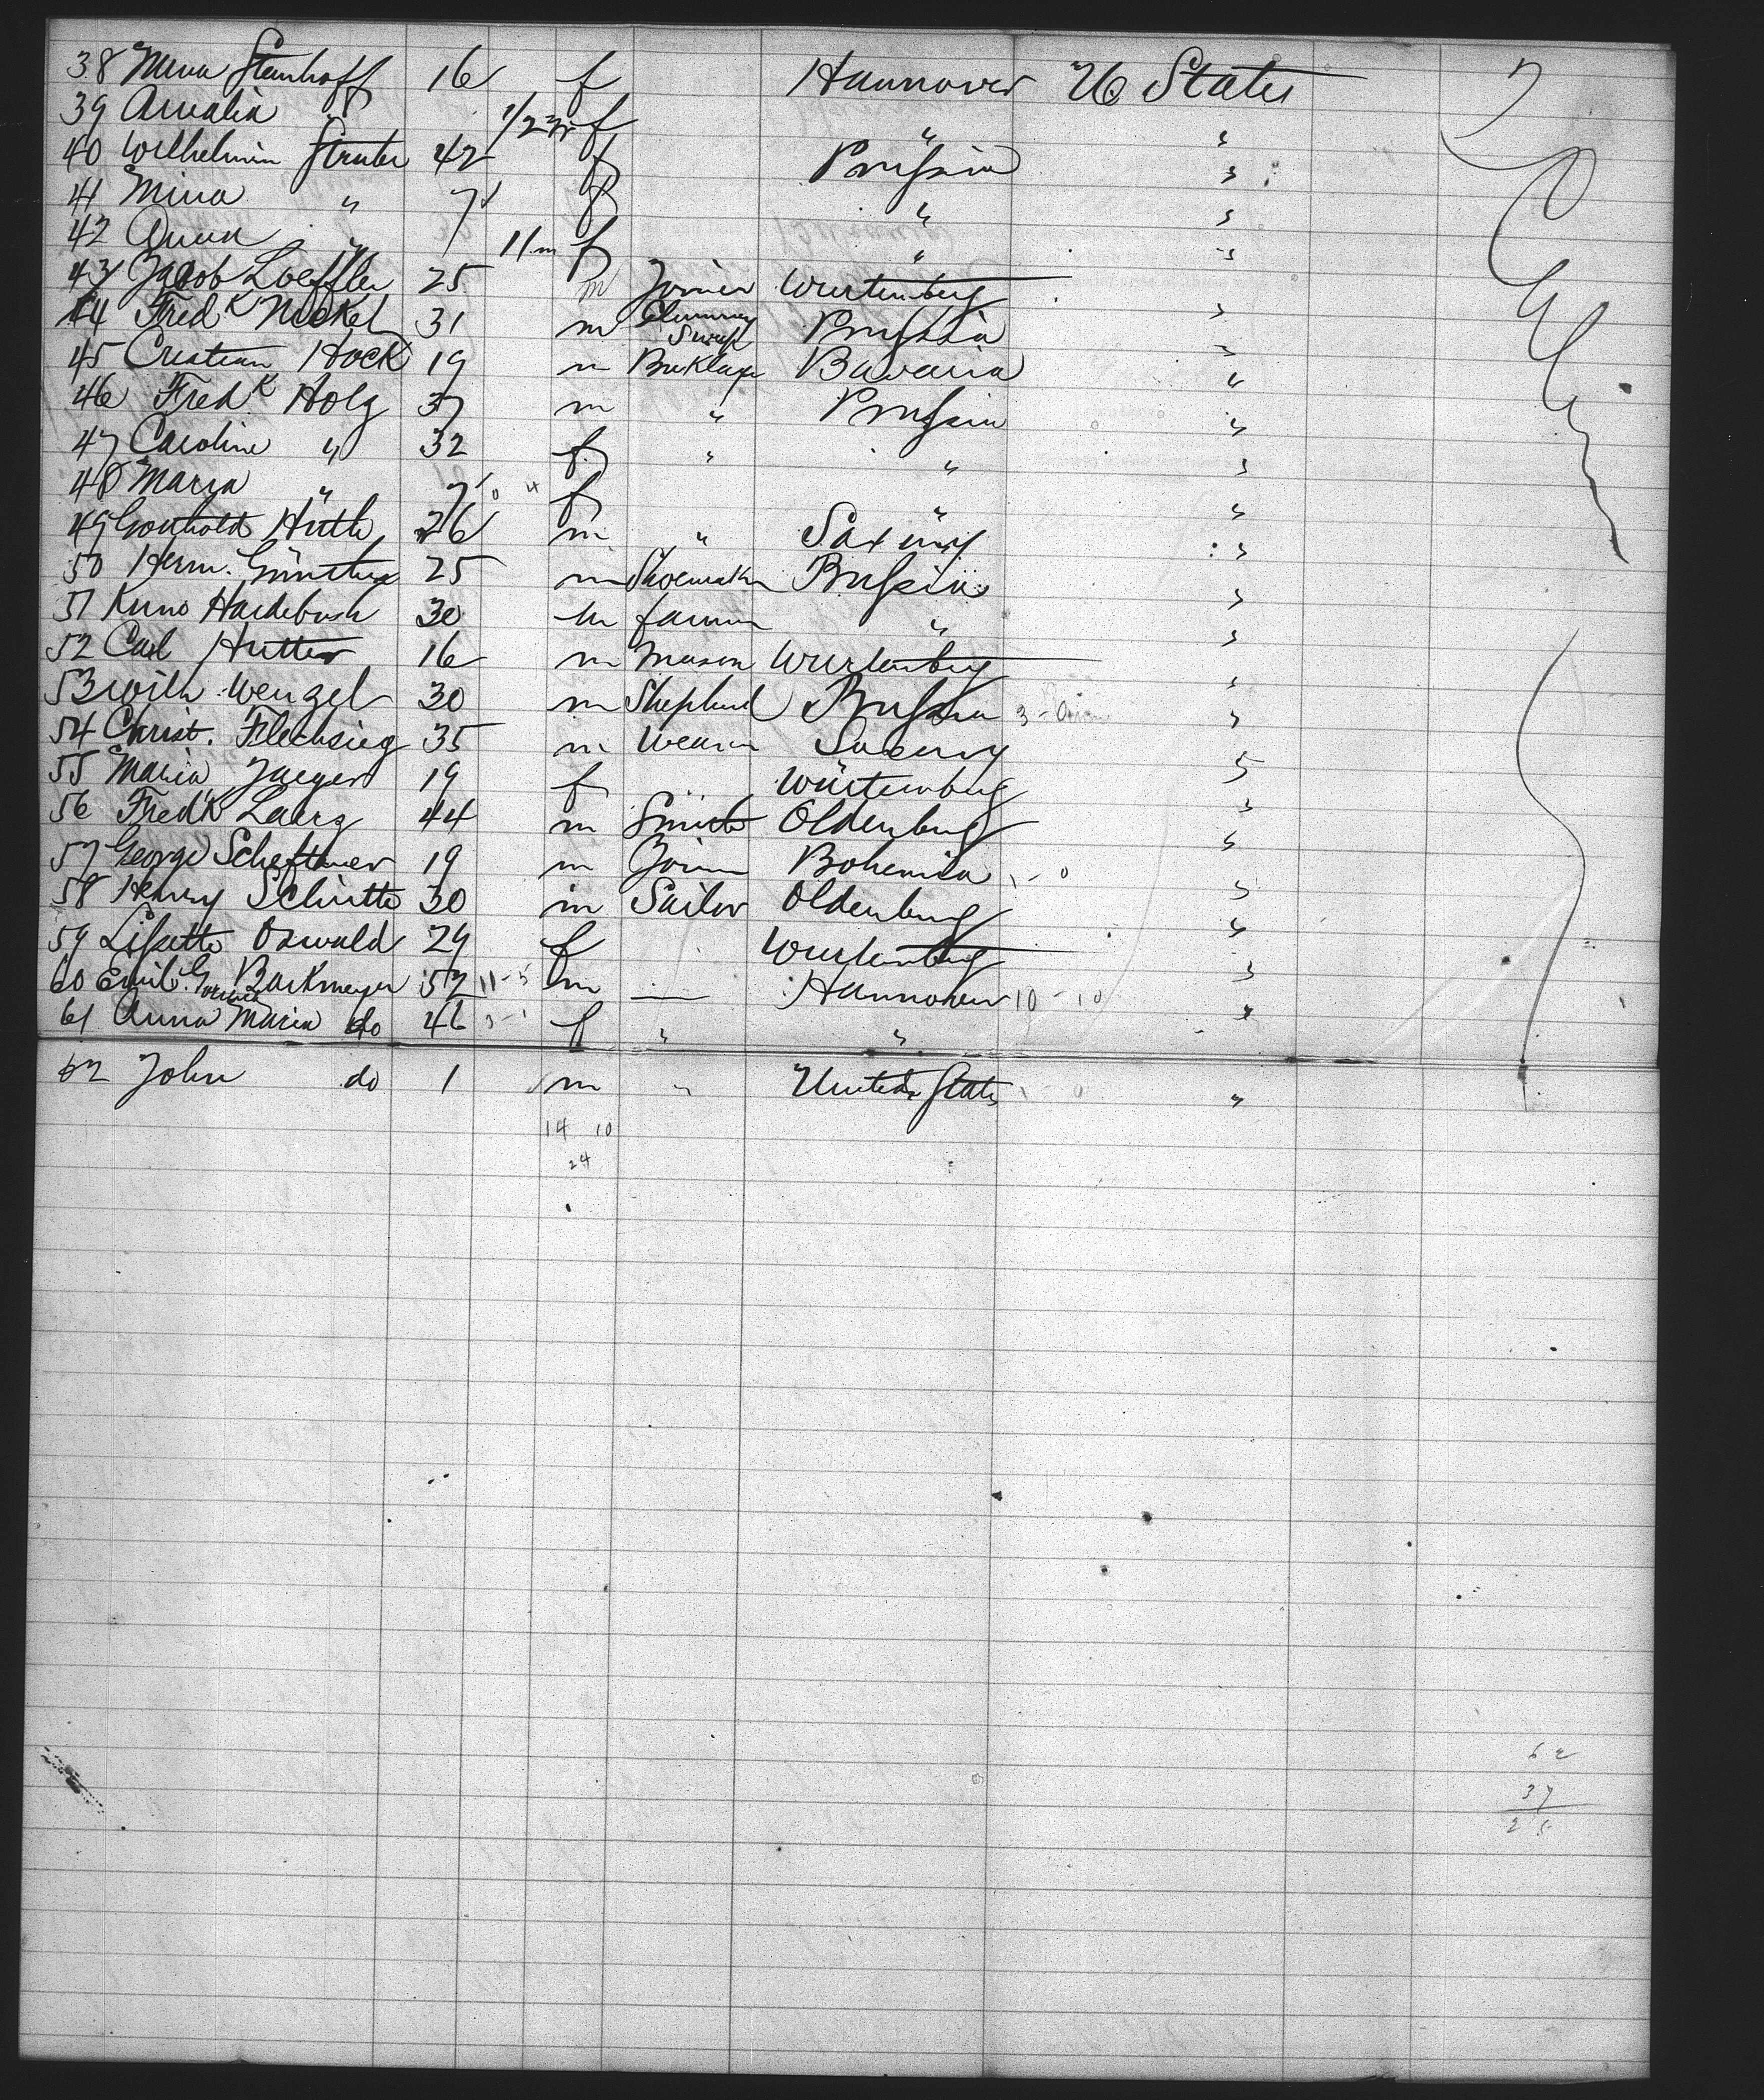 38 Mina Steinhoff 16 f Hannover U States
39 Amalia " 1/2 yr f " "
40 Wilhelmin Struter 42 f Prussia "
41 Mina " 7 f " "
42 Anna " 11 m f " "
43 Jacob Loeffler 25 m Joiner Wurtemberg "
44 Fredk Nickel 31 m Chimney Sweep Prussia "
45 Cristian Hock 19 m Bricklayer Bavaria "
46 Fredk Holz 37 m " Prussia "
47 Caroline " 32 f " " "
48 Maria " 7 f " "
49 Gotthold Hüttl 26 m " Saxony "
50 Herm. Günther 25 m Shoemaker Prussia "
51 Kuno Hardebush 30 m farmer " "
52 Carl Hutter 16 m Mason Wurtemberg "
53 Wilh Wenzel 30 m Shepherd Prussia "
54 Christ. Flechsieg 35 m Weaver Saxony "
55 Maria Jaeger 19 f Würtemberg "
56 Fredk Laerz 44 m Smith Oldenburg "
57 George Scheftner 19 m Joiner Bohemia "
58 Henry Schütte 30 m Sailor Oldenburg "
59 Lisette Oswald 29 f Wurtemberg "
60 Emil G. Barkmeyer 52 11-5 m — Hannover 10-10 "
61 Anna Maria do 46 3-1 f " " "
62 John do 1 m " United States "
14 10
24
62
37
25